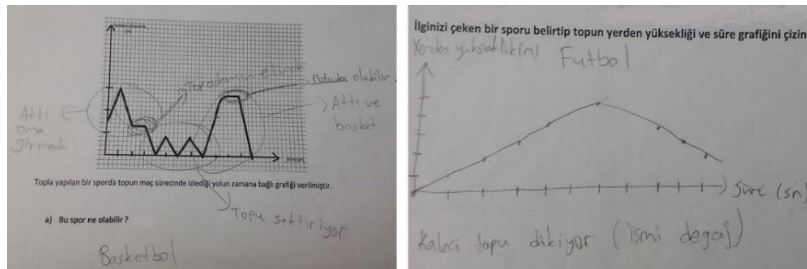 Attı
ama
girmedi
Potada olabilir.
Attı ve
basket
Topla yapılan bir sporda topun maç sürecinde izlediği yolun zamana bağlı grafiği verilmiştir.
Topu sektiriyor
a) Bu spor ne olabilir ?
Basketbol
İlginizi çeken bir sporu belirtip topun yerden yüksekliği ve süre grafiğini çizin
Yerden yükseklik(m)
Futbol
Süre (sn)
Kaleci topu dikiyor (ismi degaj)